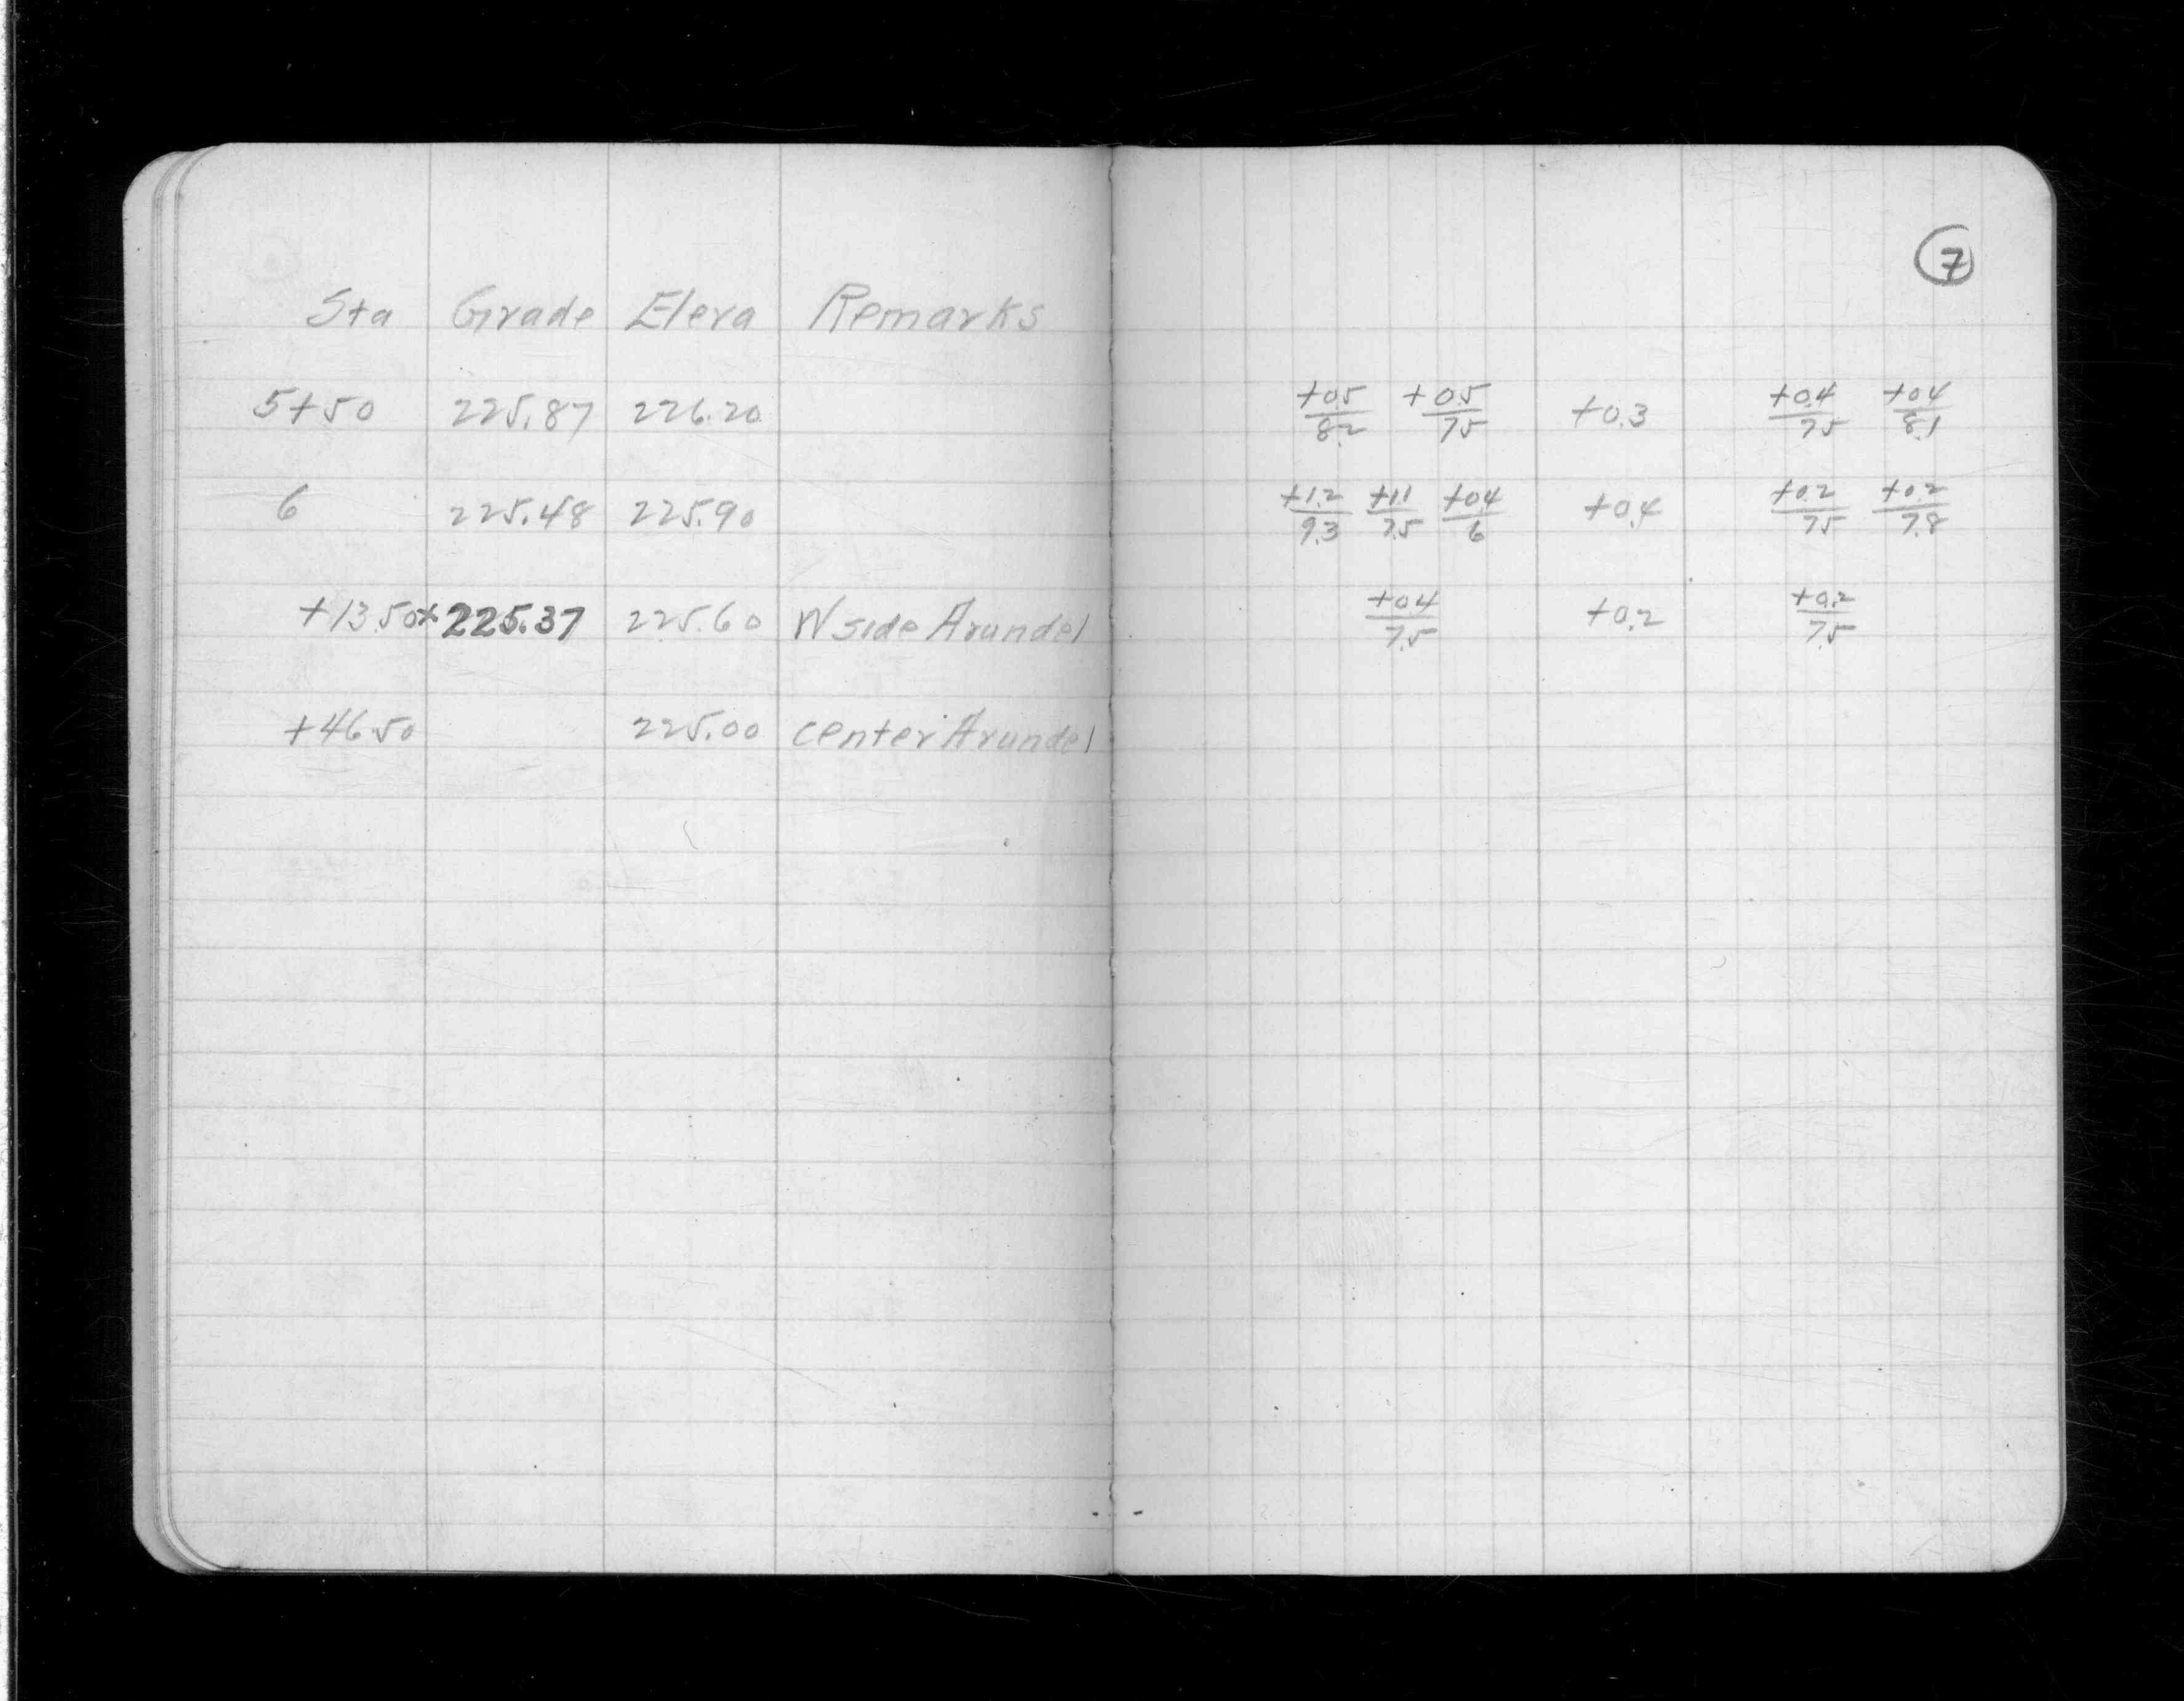 7
Sta Grade Eleva Remarks
5+50 225.87 226.20 +0.5/8.2 +0.5/7.5 +0.3 +0.4/7.5 +0.4/8.1
6 225.48 225.90 +1.2/9.3 +1.1/7.5 +0.4/6 +0.4 +0.2/7.5 +0.2/7.8
+13.50 x 225.37 225.60 W side Arundel +0.4/7.5 +0.2 +0.2/7.5
+46.50 225.00 center Arundel